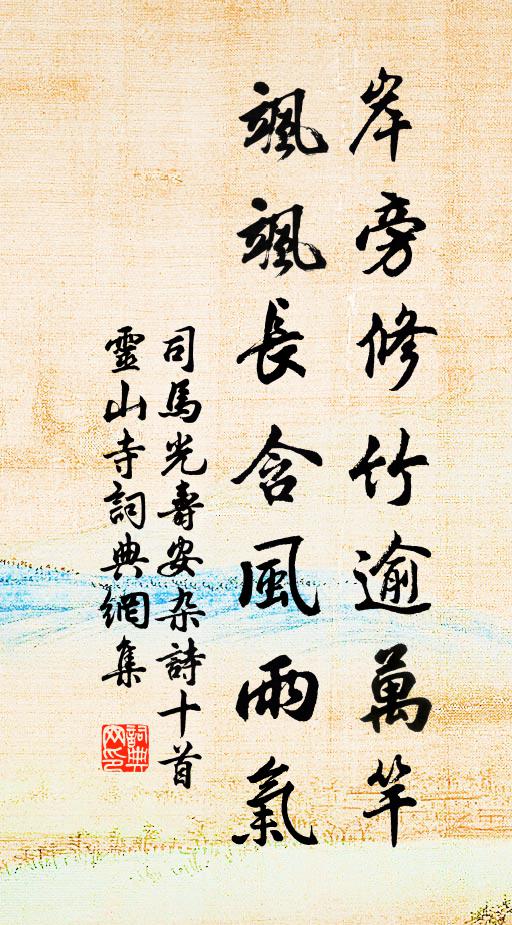 岸旁修竹逾萬竿
颯颯長含風雨氣
司馬光壽安杂詩十首
靈山寺詞典網集
詞典
网印